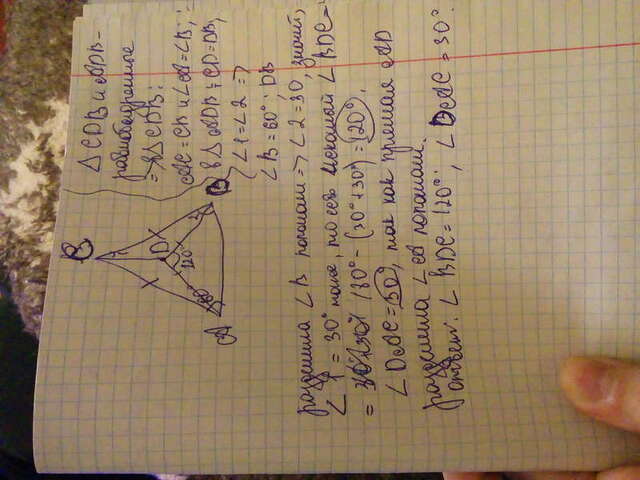 C
A
B
D
60°
120°
1
2
△ CDB и ADB -
равнобедренные
=> в △ CDB:
AC = CB и ∠A = ∠B;
в △ ADB: CD = DB,
∠1 = ∠2 =>
∠B = 60°; DB
разделила ∠B пополам => ∠2 = 30, значит,
∠1 = 30° тоже, то есть искомый ∠BDC =
= 180° - (30° + 30°) = 120°.
∠DAC = 30°, так как прямая AD
разделила ∠A пополам.
ответ: ∠BDC = 120°; ∠DAC = 30°.